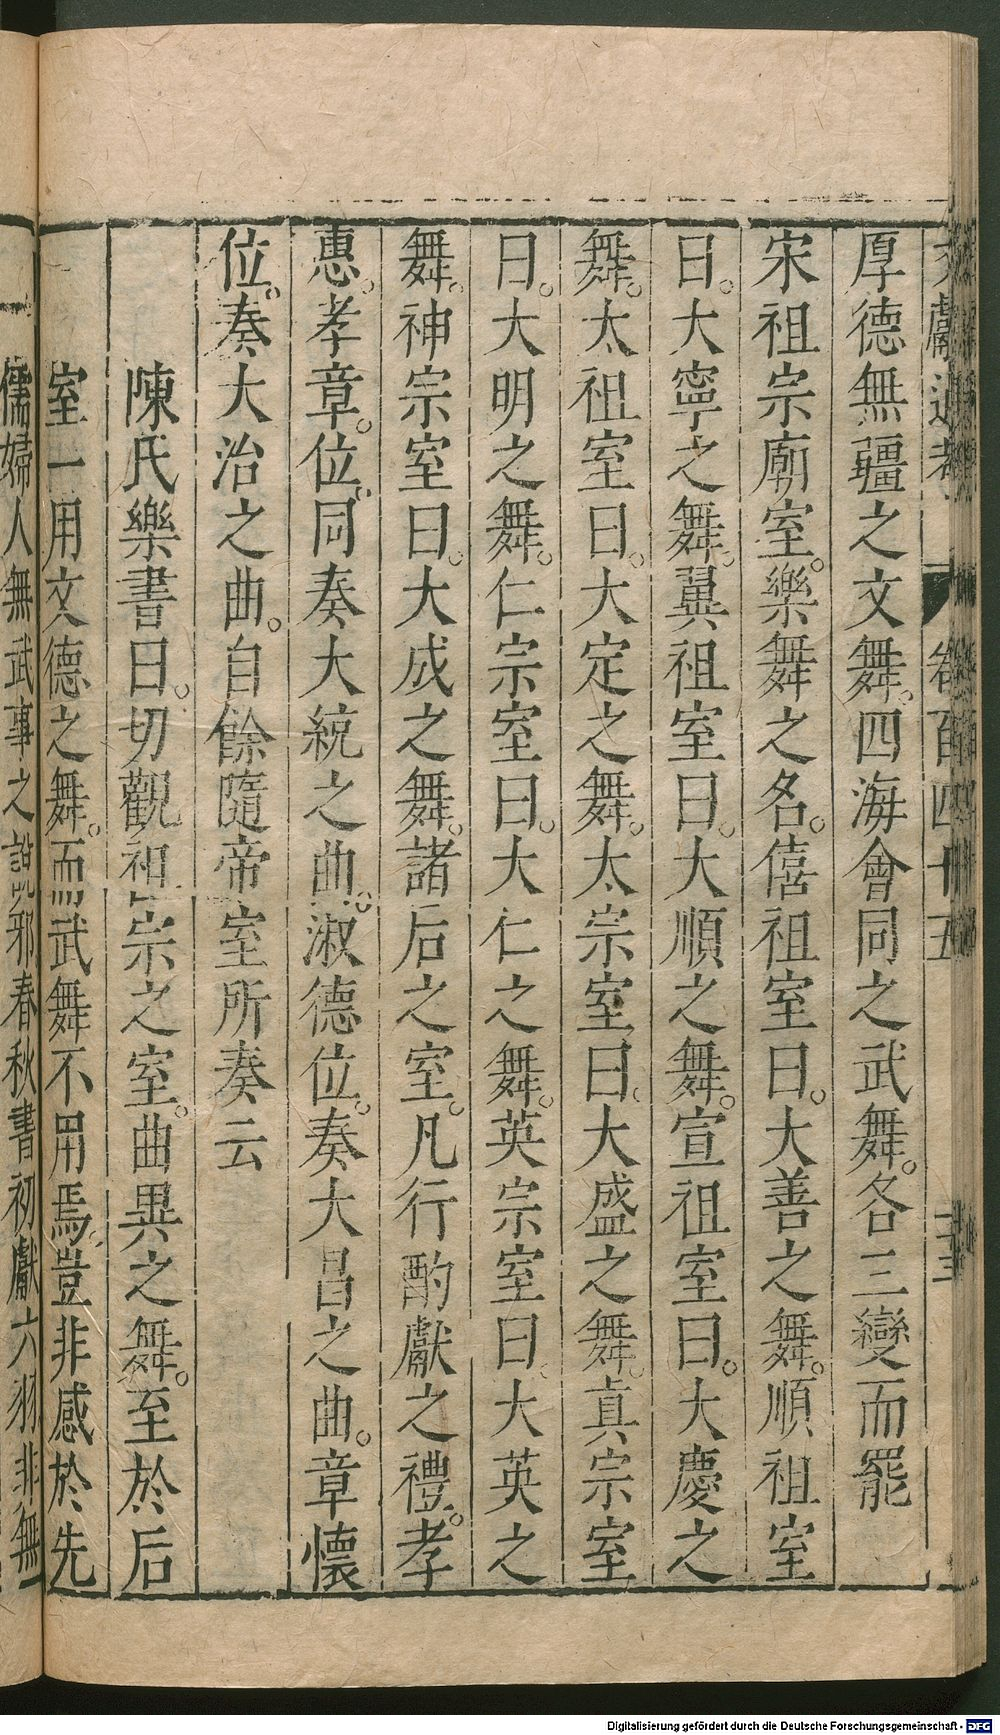 文獻通考 卷百四十五
厚德無疆之文舞。四海會同之武舞。各三變而罷
宋祖宗廟室。樂舞之名。僖祖室曰。大善之舞。順祖室
曰。大寧之舞。翼祖室曰。大順之舞。宣祖室曰。大慶之
舞。太祖室曰。大定之舞。太宗室曰。大盛之舞。真宗室
曰。大明之舞。仁宗室曰。大仁之舞。英宗室曰。大英之
舞。神宗室曰。大成之舞。諸后之室。凡行酌獻之禮。孝
惠。孝章。位。同奏大統之曲。淑德位。奏大昌之曲。章懷
位。奏大治之曲。自餘隨帝室所奏云
陳氏樂書曰。切觀祖宗之室。曲異之舞。至於后
室一用文德之舞。而武舞不用焉。豈非感於先
儒婦人無武事之說邪春秋書初獻六羽非無
Digitalisierung gefördert durch die Deutsche Forschungsgemeinschaft - DFG